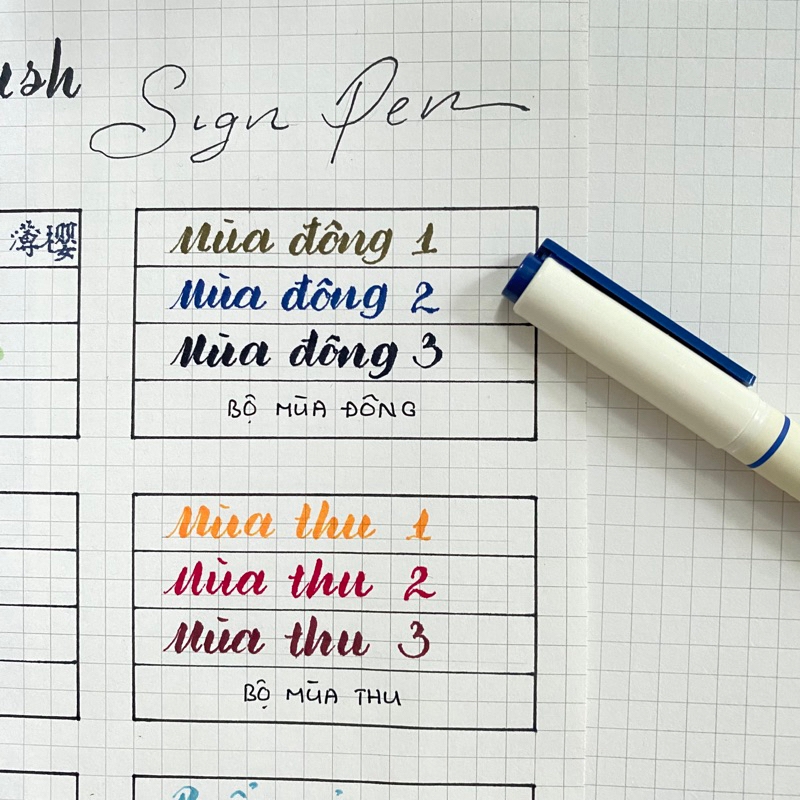 Sign Pen
薄樱
Mùa đông 1
Mùa đông 2
Mùa đông 3
BỘ MÙA ĐÔNG
Mùa thu 1
Mùa thu 2
Mùa thu 3
BỘ MÙA THU